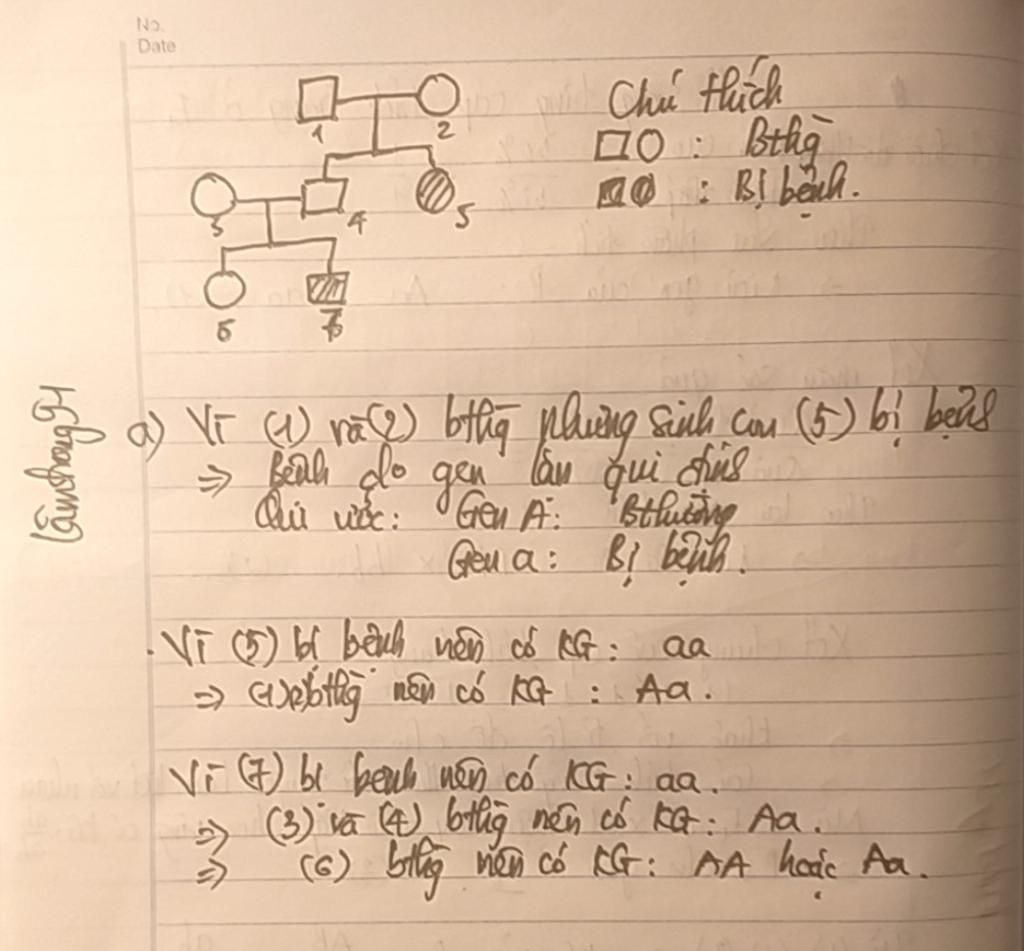 No.
Date
1 2
3 4 5
6 7
Chú thích
: Bthg̀
: Bị bệnh.
a) Vì (1) và (2) bthg̀ nhưng sinh con (5) bị bệnh
⇒ Bệnh do gen lặn qui định
Qui ước: Gen A: Bthường
Gen a: Bị bệnh.
Vì (5) bị bệnh nên có KG: aa
⇒ (1)(2) bthg̀ nên có KG : Aa.
Vì (7) bị bệnh nên có KG: aa.
⇒ (3) và (4) bthg̀ nên có KG: Aa.
⇒ (6) bthg̀ nên có KG: AA hoặc Aa.